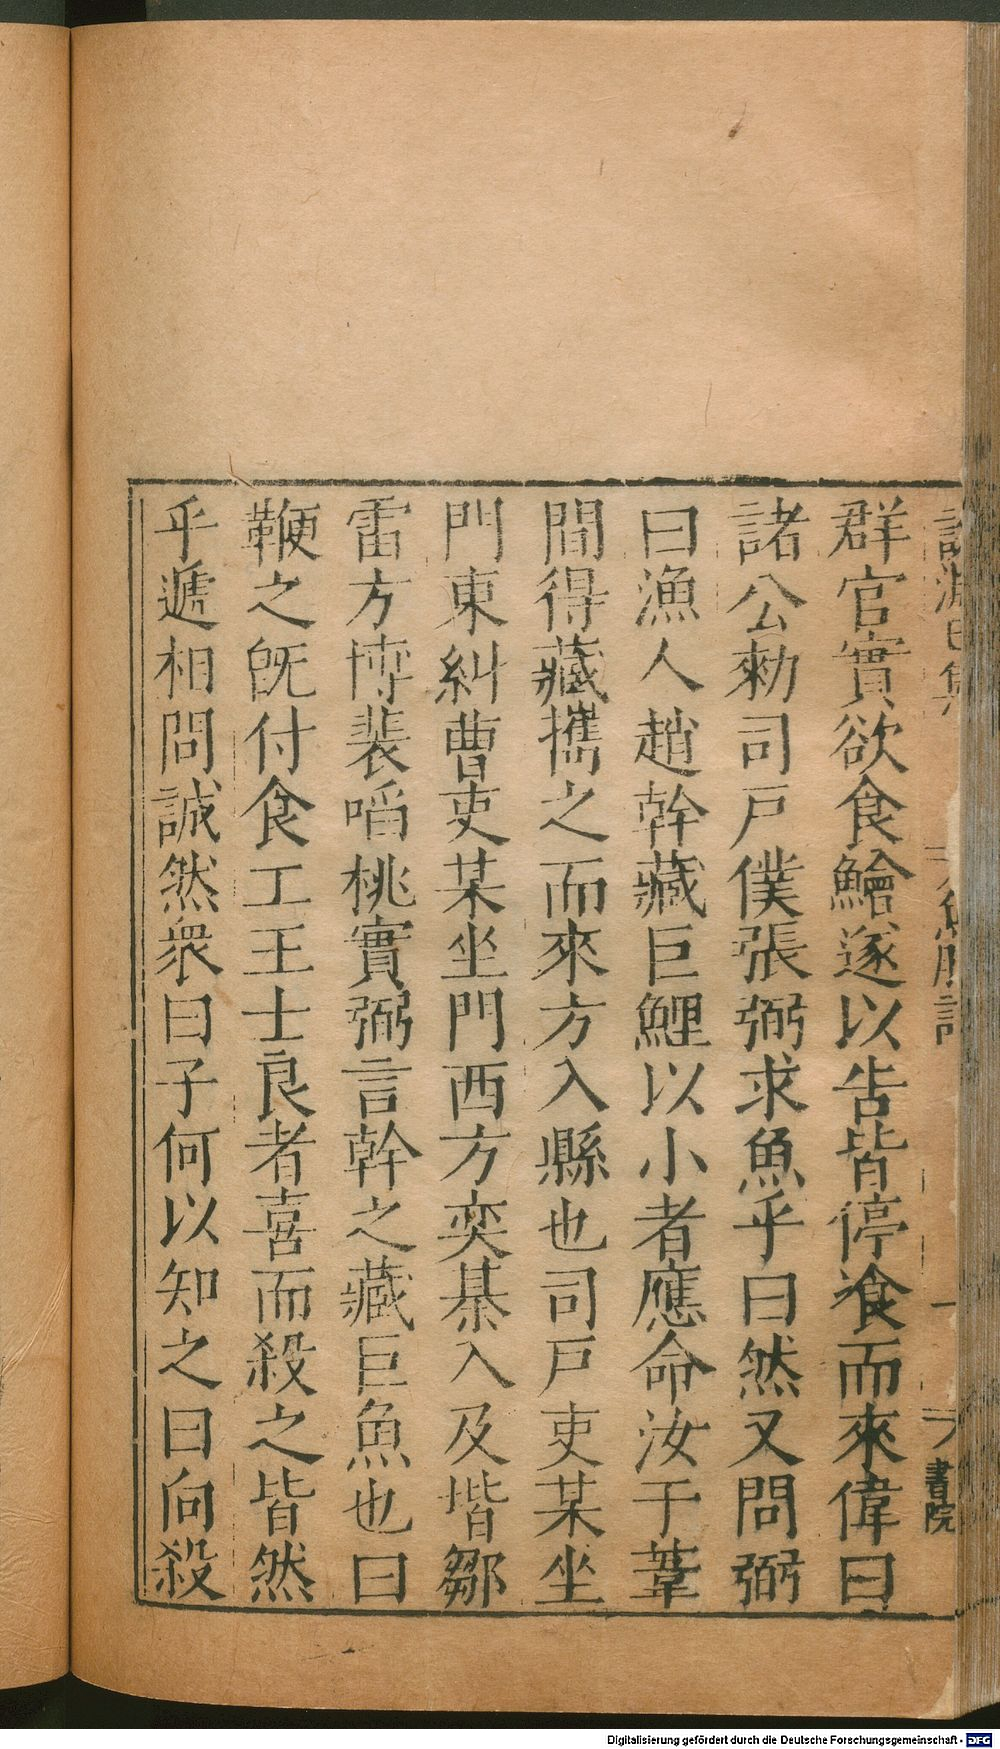 魚服記
一
書院
群官實欲食鱠遂以告皆停飡而來偉曰
諸公勑司戸僕張弼求魚乎曰然又問弼
曰漁人趙幹藏巨鯉以小者應命汝于葦
間得藏攜之而來方入縣也司戸吏某坐
門東糾曹吏某坐門西方奕棊入及堦鄒
雷方博裴啗桃實弼言幹之藏巨魚也曰
鞭之旣付食工王士良者喜而殺之皆然
乎遞相問誠然衆曰子何以知之曰向殺
Digitalisierung gefördert durch die Deutsche Forschungsgemeinschaft - DFG